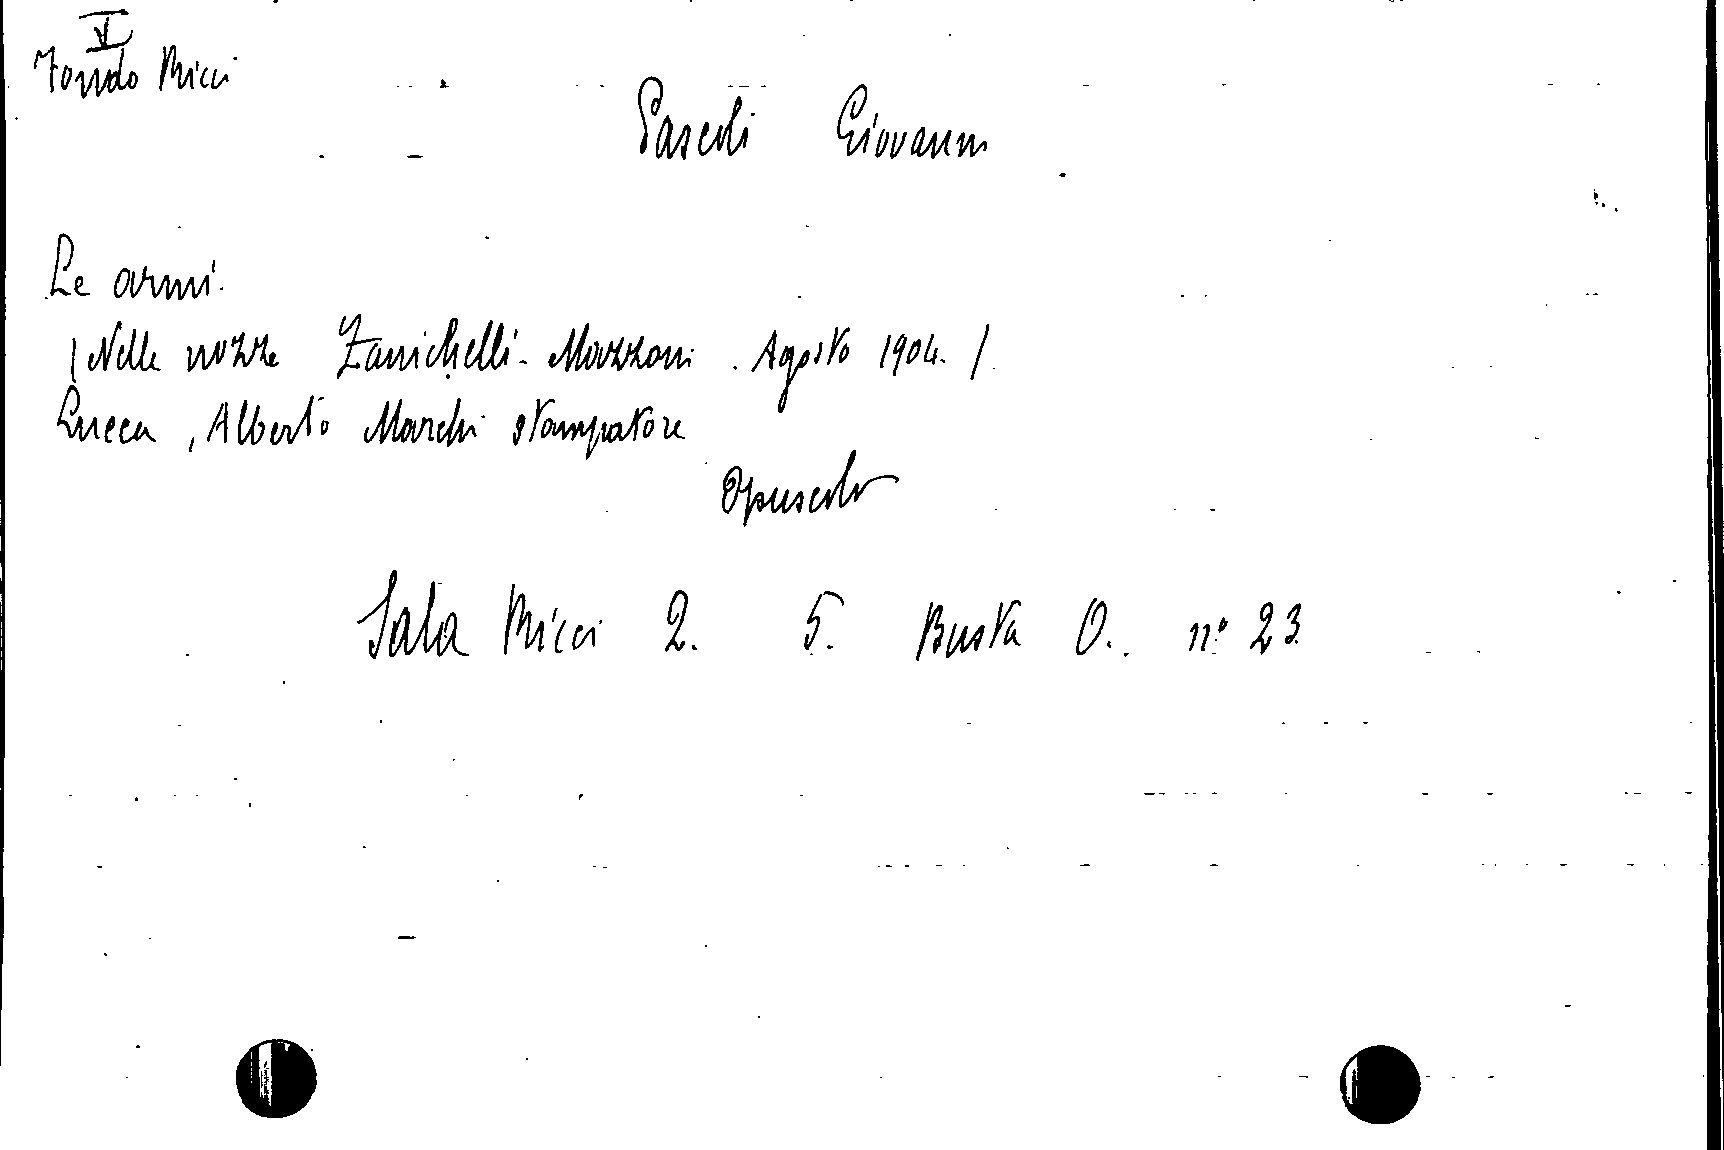 V
Fondo Ricci
Pascoli Giovanni
Le armi.
(Nelle nozze Zanichelli-Mazzoni. Agosto 1904.)
Lucca, Alberto Marchi stampatore
Opuscolo
Sala Ricci 2. 5. Busta O.. n° 23